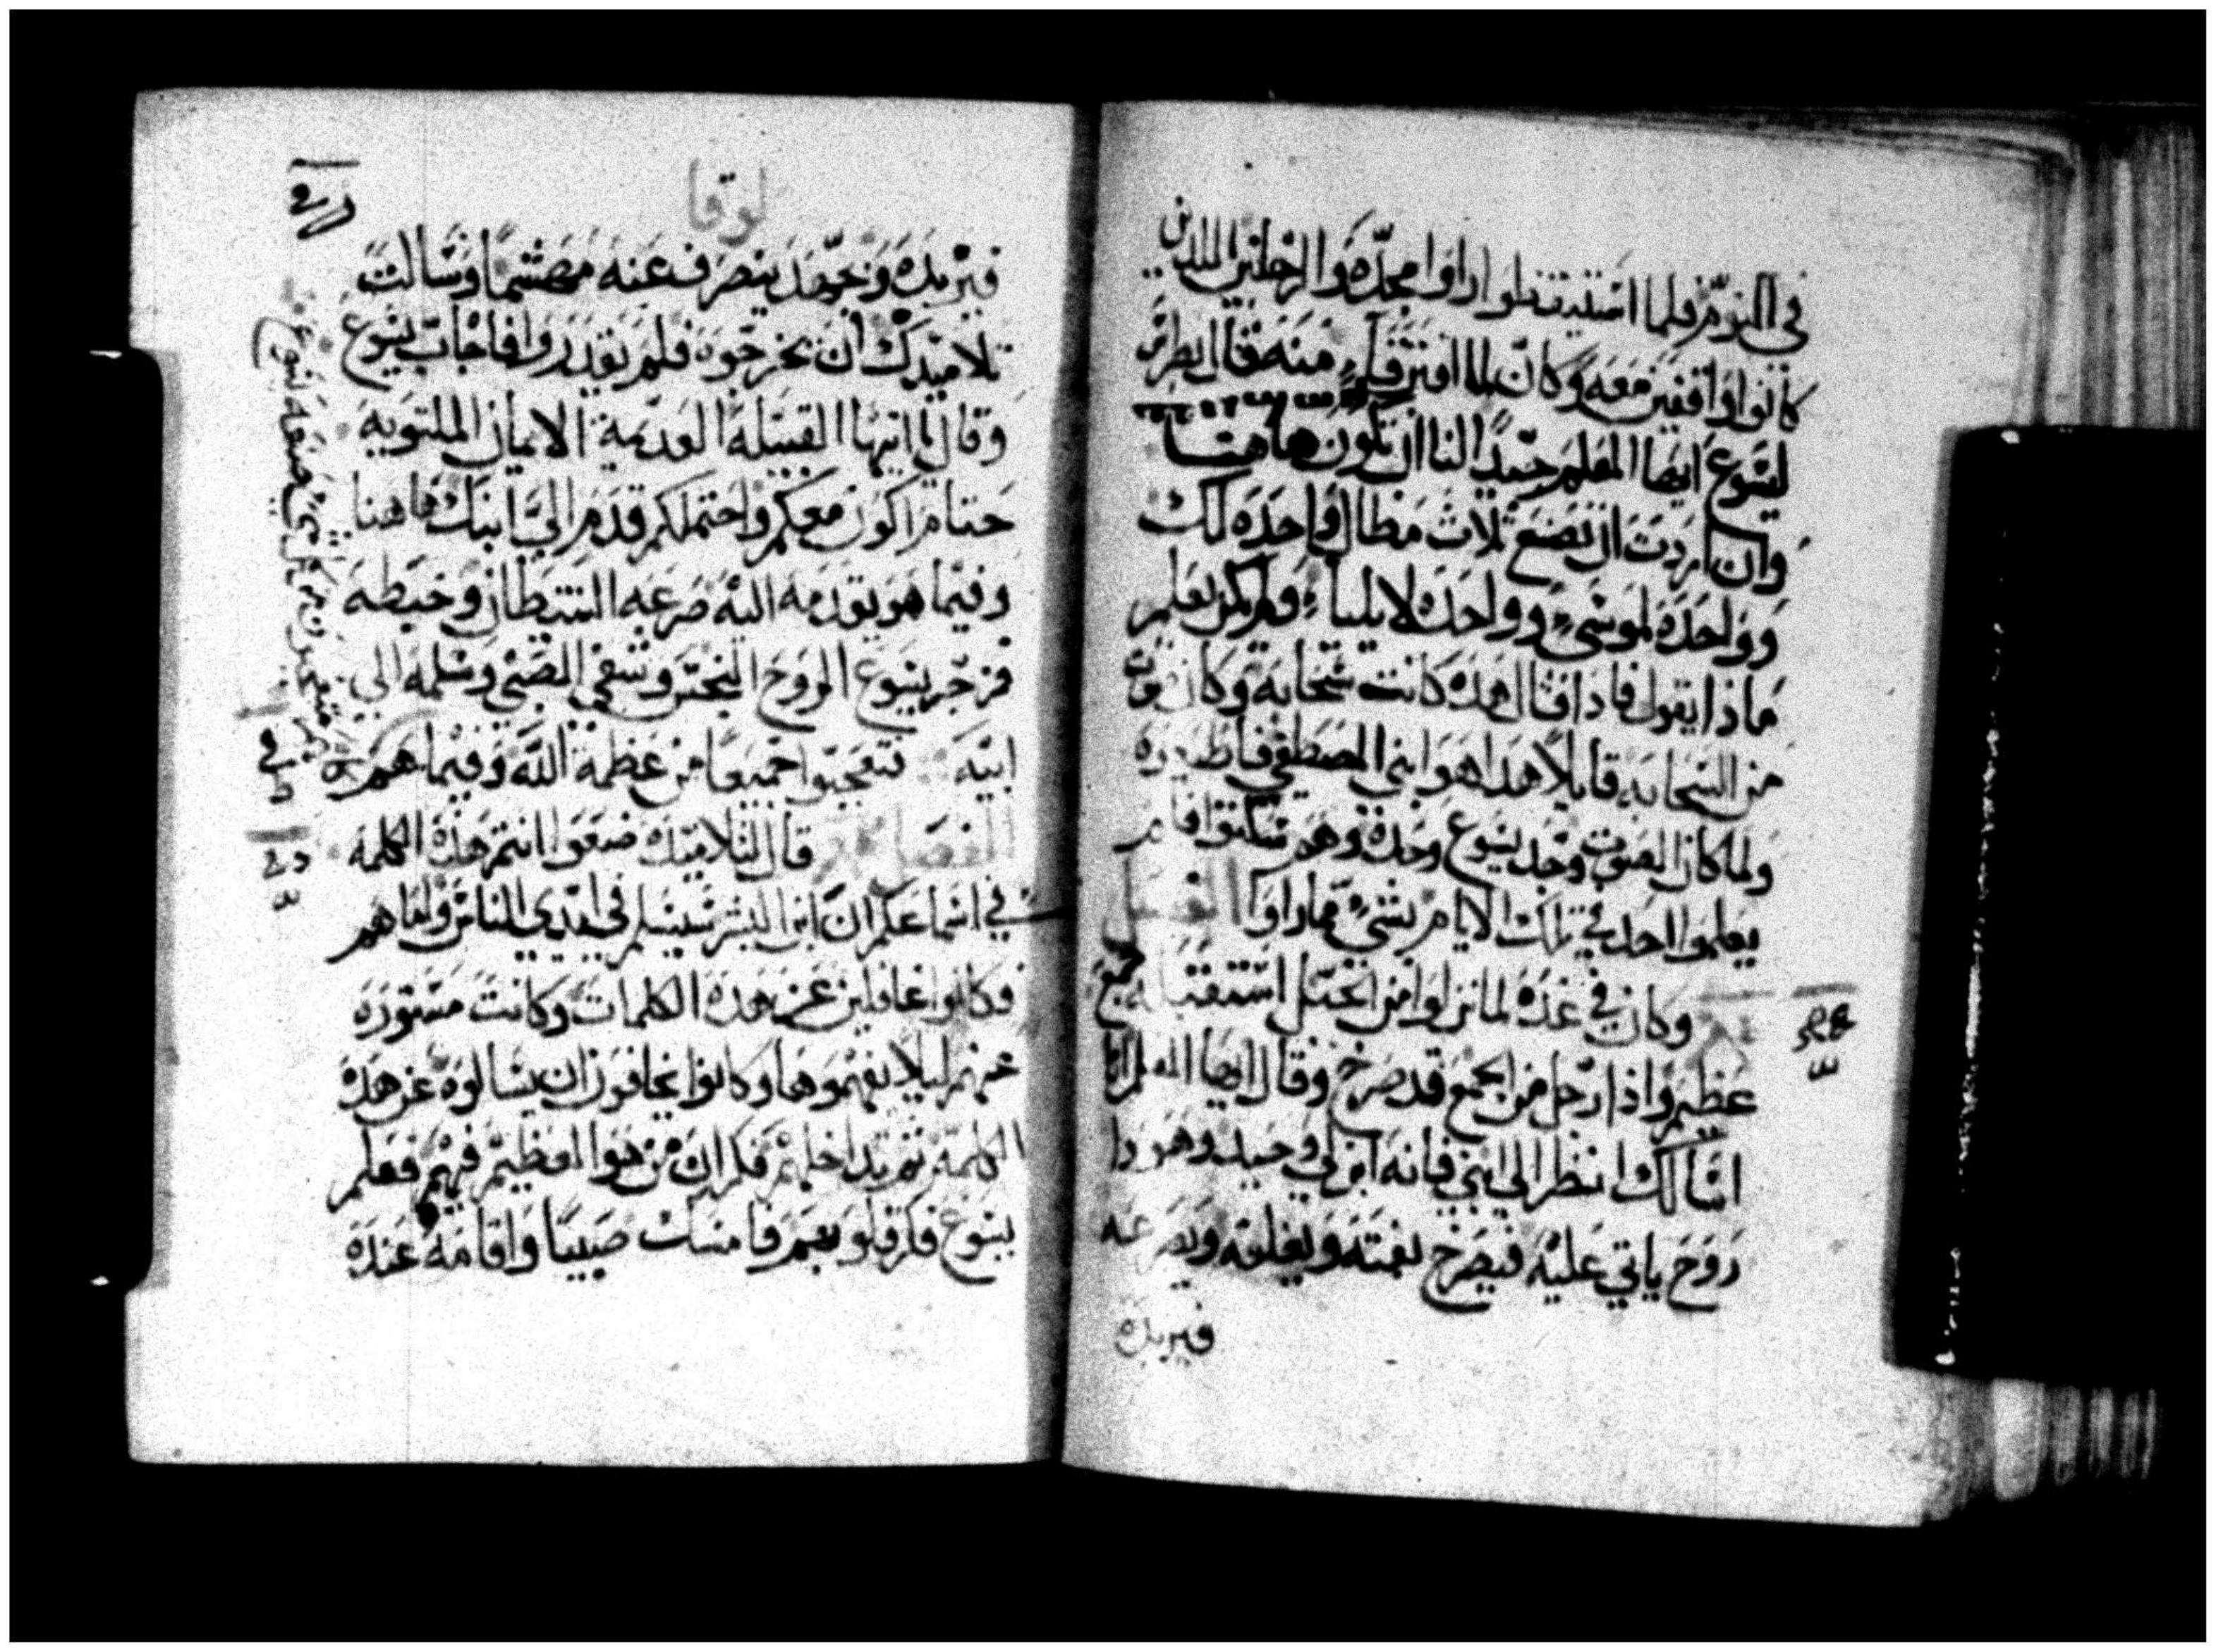 في النوم فلما استيقظوا راوا مجده والرجلين اللدين
كانوا واقفين معه وكان لما افترقا منه قال بطرس
ليسوع ايها المعلم جيدا لنا ان نكون هاهنا
وان اردت ان نصنع ثلاث مظال واحده لك
وواحده لموسى وواحده لايلياء ولم يكن يعلم
ماذا يقول فاذا قال هده كانت سحابه وكان صوت
من السحابه قايلا هدا هو ابني المصطفي فاطيعوه
ولما كان الصوت وجد يسوع وحده وهم سكتوا فلم
يعلموا احد في تلك الايام بشي مما راوا الفصل
وكان في غده لما نزلوا من الجبل استقبله جمع
عظيم واذا رجل من الجمع قد صرخ وقال ايها المعلم انا
اسالك انظر الي ابني فانه ابن لي وحيد وهودا
روح ياتي عليه فيصرخ بغته ويقلعه ويصرعه
فيزبده
لوقا
فيزبده وبجهد ينصرف عنه مهشما وسالت
تلاميدك ان يخرجوه فلم يقدروا فاجاب يسوع
وقال يا ايتها القبيلة العديمة الايمان الملتويه
حتام اكون معكم واحتملكم قدم الي ابنك هاهنا
وفيما هو يقدمه اليه صرعه الشيطان وخبطه
فزجر يسوع الروح النجس وشفي الصبي وسلمه الي
ابيه فتعجبوا جميعا من عظمة الله وفيما هم
الفصل قال لتلاميذه ضعوا انتم هذه الكلمه
في اسماعكم ان ابن البشر سيسلم في ايدي الناس واما هم
فكانوا غافلين عن هده الكلمات وكانت مستوره
عنهم ليلا يفهموها وكانوا يخافون ان يسالوه عن هده
الكلمة ثم بدا خلهم فكرا ان من هو العظيم فيهم فعلم
يسوع فكر قلوبهم فامسك صبيا واقامه عنده
متعجبون من كل شي صنعه يسوع